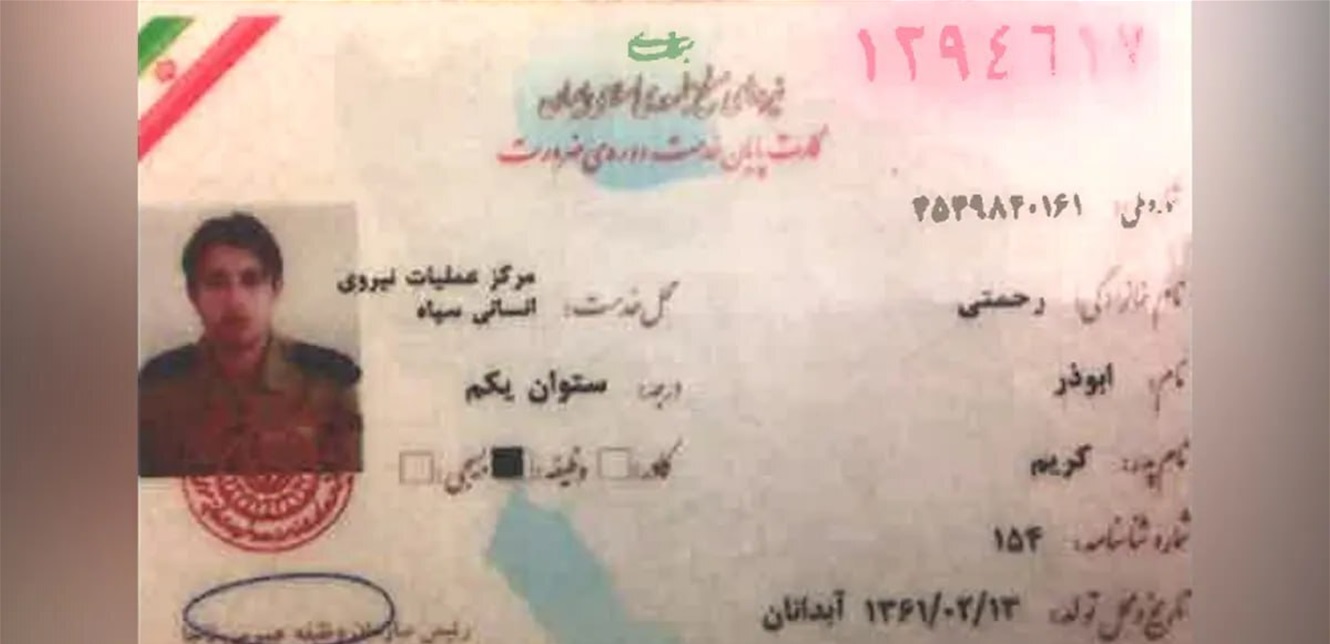 ۱۲۹۴۶۱۷
نیروهای مسلح جمهوری اسلامی ایران
کارت پایان خدمت دوره‌ی ضرورت
شماره ملی: ۴۵۳۹۸۲۰۱۶۱
نام خانوادگی: رحمتی
نام: ابوذر
نام پدر: کریم
شماره شناسنامه: ۱۵۴
تاریخ و محل تولد: ۱۳۶۱/۰۲/۱۳ آبدانان
محل خدمت: مرکز عملیات نیروی
انسانی سپاه
درجه: ستوان یکم
کادر: وظیفه: بسیجی:
رئیس سازمان وظیفه عمومی